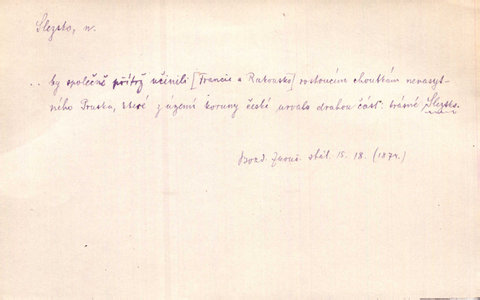 Slezsko, n.
.. by společně přítrž učinili [Francie a Rakousko] rostoucím choutkám nenasyt-
ného Pruska, které z území koruny české urvalo drahou část: krásné Slezsko.
15. 18. (1874.)